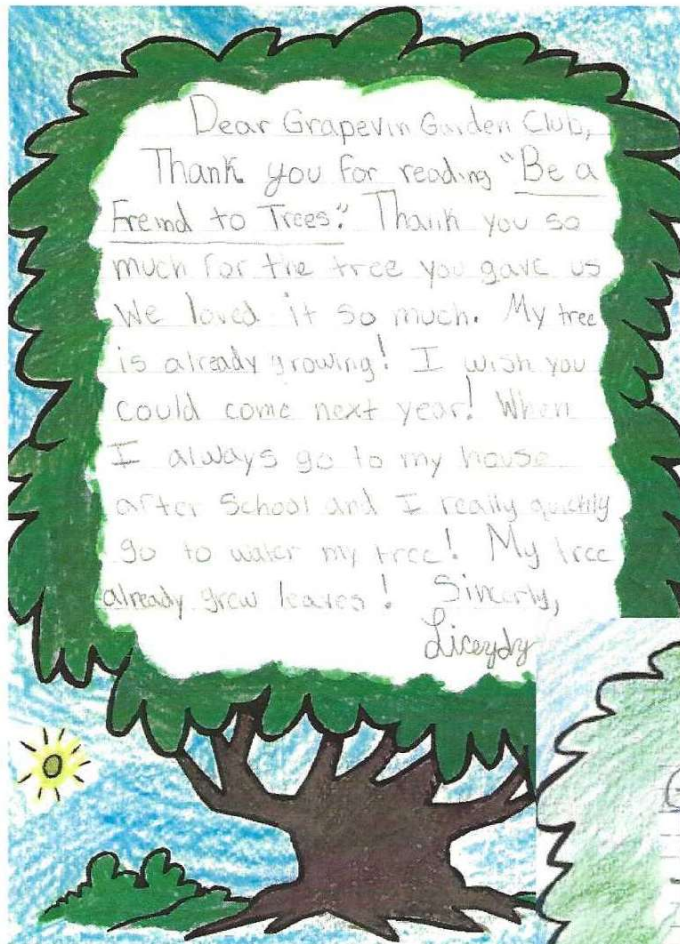 Dear Grapevin Garden Club,
Thank you for reading "Be a
Freind to Trees." Thank you so
much for the tree you gave us
We loved it so much. My tree
is already growing! I wish you
could come next year! When
I always go to my house
after school and I really quickly
go to water my tree! My tree
already grew leaves! Sincerly,
Liceydy